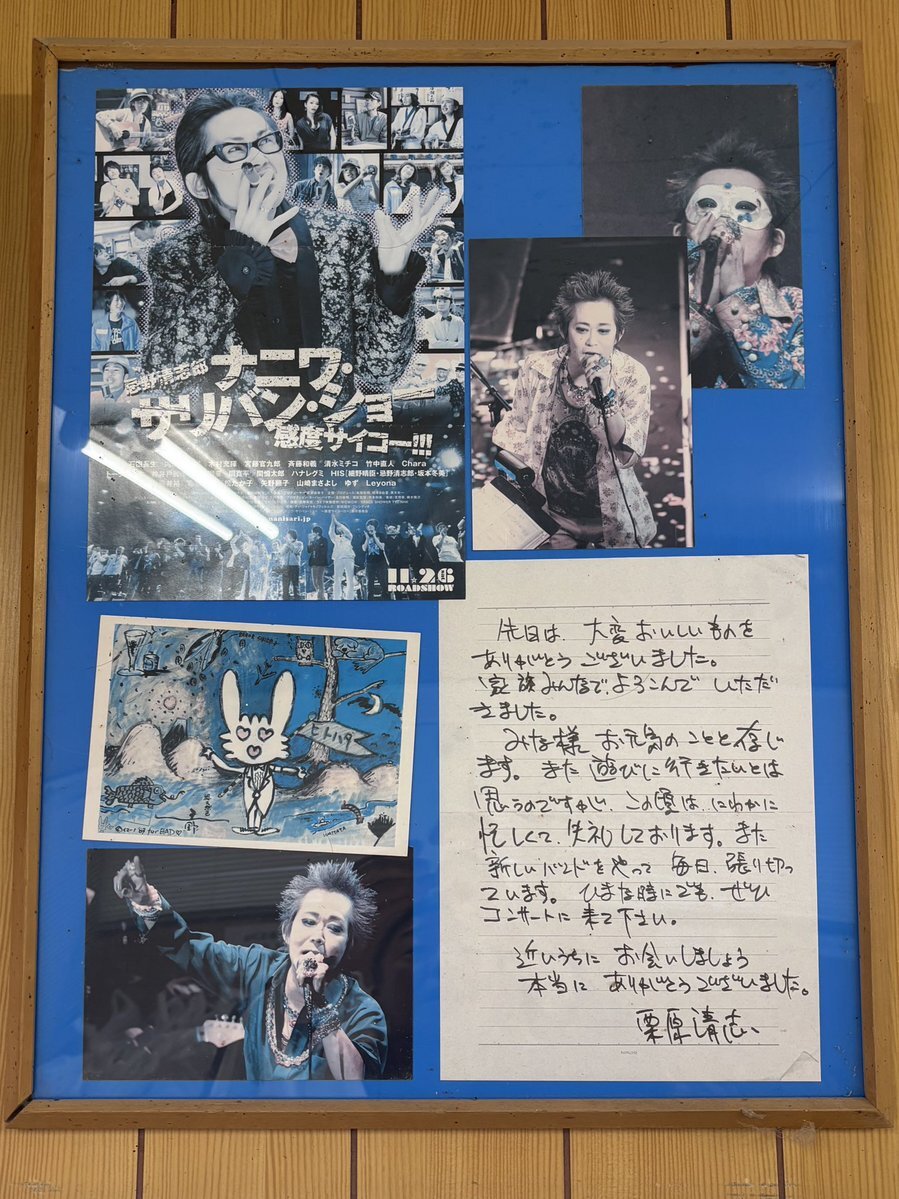 忌野清志郎
ナニワ・
サリバン・ショー
感度サイコー!!!
木村充揮 宮藤官九郎 斉藤和義 清水ミチコ 竹中直人 Chara
間慎太郎 ハナレグミ HIS[細野晴臣・忌野清志郎・坂本冬美]
松たか子 矢野顕子 山崎まさよし ゆず Leyona
nanisari.jp
11.26
ROADSHOW
ヒトハタ
for BAD
先日は、大変おいしいものを
ありがとうございました。
家族みんなで、よろこんでいただ
きました。
みな様お元気のことと存じ
ます。また遊びに行きたいとは
思うのですが、この頃は、にわかに
忙しくて、失礼しております。また
新しいバンドをやって毎日、張り切っ
ています。ひまな時にでも、ぜひ
コンサートに来て下さい。
近いうちにお会いしましょう
本当にありがとうございました。
栗原清志